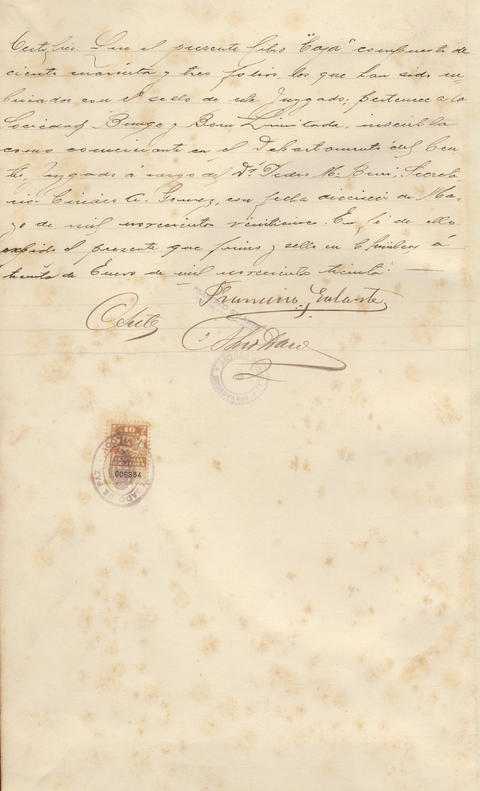 Certifico: Que el presente libro "Caja" compuesto de
ciento cuarenta y tres folios, los que han sido ru-
bricados con el sello de este Juzgado, pertenece a la
Sociedad Bunge y Born Limitada, inscripta
como comerciante en el Departamento del
Juzgado á cargo del Dr. Pedro M. Secreta
rio con fecha de Ma-
yo de mil novecientos veinticinco. En fé de ello
expido el presente que firmo y sello en á
treinta de Enero de mil novecientos treinta. —
Francisco Galante
10
006384
JUZGADO DE PAZ